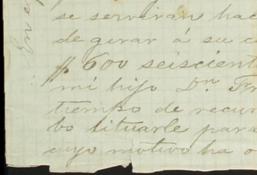 se serviran hac
de girar á su c
$ 600 seiscient
mi hijo Dn. Fr
tiempo de recur
bo situarle para
cuyo motivo ha o